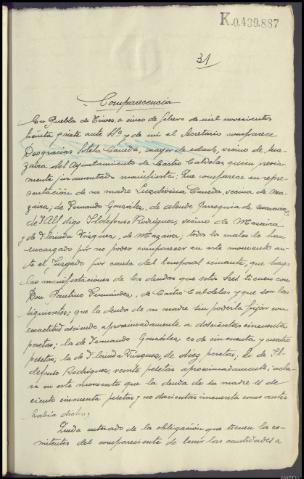 K.0.439.887
31
Comparecencia
En Puebla de Trives, a cinco de febrero de mil novecientos
treinta y siete ante Sª y de mi el Secretario comparece
Deogracias Cancela, mayor de edad, vecino de
del Ayuntamiento de Castro Caldelas quien previa-
mente juramentado manifiesta: Que comparece en repre-
sentación de su madre Cancela, vecina de
de Fernando González, de
de Ildefonso Rodríguez, vecino de
y de Vázquez, de todos los cuales le han
encargado por no poder comparecer en este momento an-
te el Juzgado por causa del temporal reinante, que haga
las manifestaciones de las deudas que estos tienen con
Don Paulino Fernández, de Castro Caldelas y que son las
siguientes; que la deuda de su madre sin poderla fijar con
exactitud asciende aproximadamente a doscientas cincuenta
pesetas, la de Fernando González es de cincuenta y cuatro
pesetas, la de Vázquez, de doce pesetas, la de Il-
defonso Rodríguez veinte pesetas aproximadamente; aclara
en este momento que la deuda de su madre es de
ciento cincuenta pesetas y no doscientas cincuenta como antes
había dicho;
Queda enterado de la obligación que tienen los co-
mitentes del compareciente de tener las cantidades a